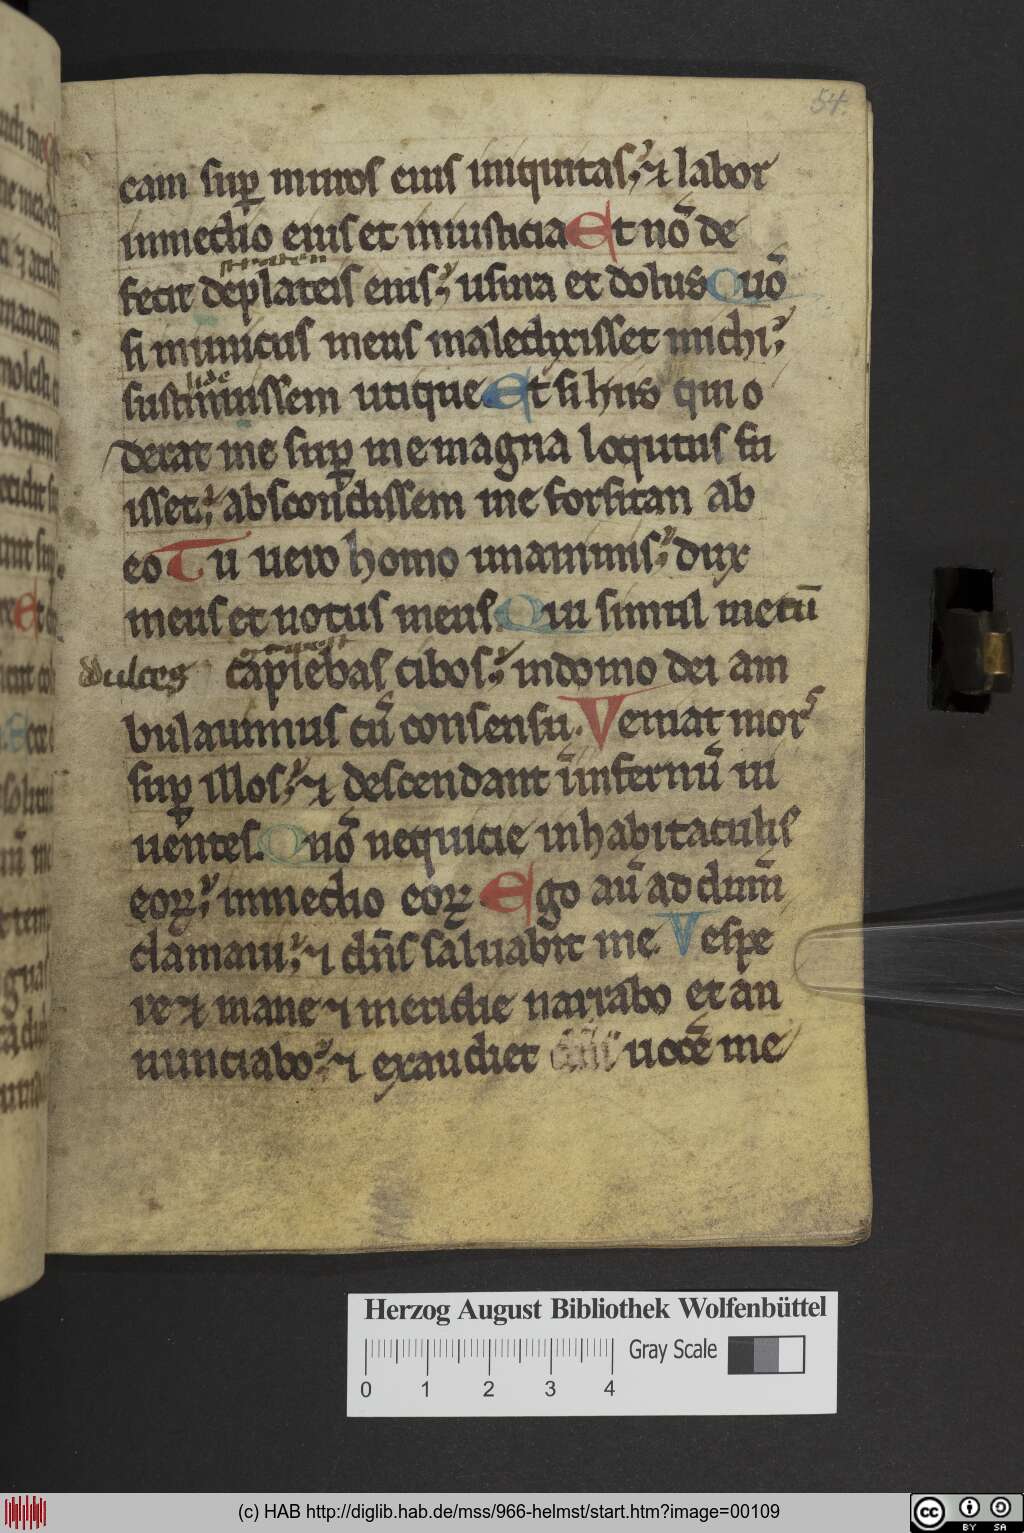 54.
cam suꝑ muros eius iniquitas; ⁊ labor
inmedio eius et iniusticia Et nō de
straten
fecit deplateis eius; usura et dolus Quō
si inimicus meus maledixisset michi;
lide
sustinuissem utique Et si hiis qui o
derat me suꝑ me magna loqutus fu
isset; abscondissem me forsitan ab
eo Tu uero homo unanimis; dux
meus et notus meus Qui simul mecū
dulces capiebas cibos; indomo dei am
bulauimus cū consensu. Veniat mors
suꝑ illos; ⁊ descendant īinfernū ui
uentes. Quō nequicie inhabitaculis
eoꝝ; inmedio eoꝝ. Ego aū ad dūm
clamaui; ⁊ dn̄s saluabit me Vespe
re ⁊ mane ⁊ meridie narrabo et an
nunciabo; ⁊ exaudiet uocē me
Herzog August Bibliothek Wolfenbüttel
Gray Scale
0 1 2 3 4
(c) HAB http://diglib.hab.de/mss/966-helmst/start.htm?image=00109
CC BY SA